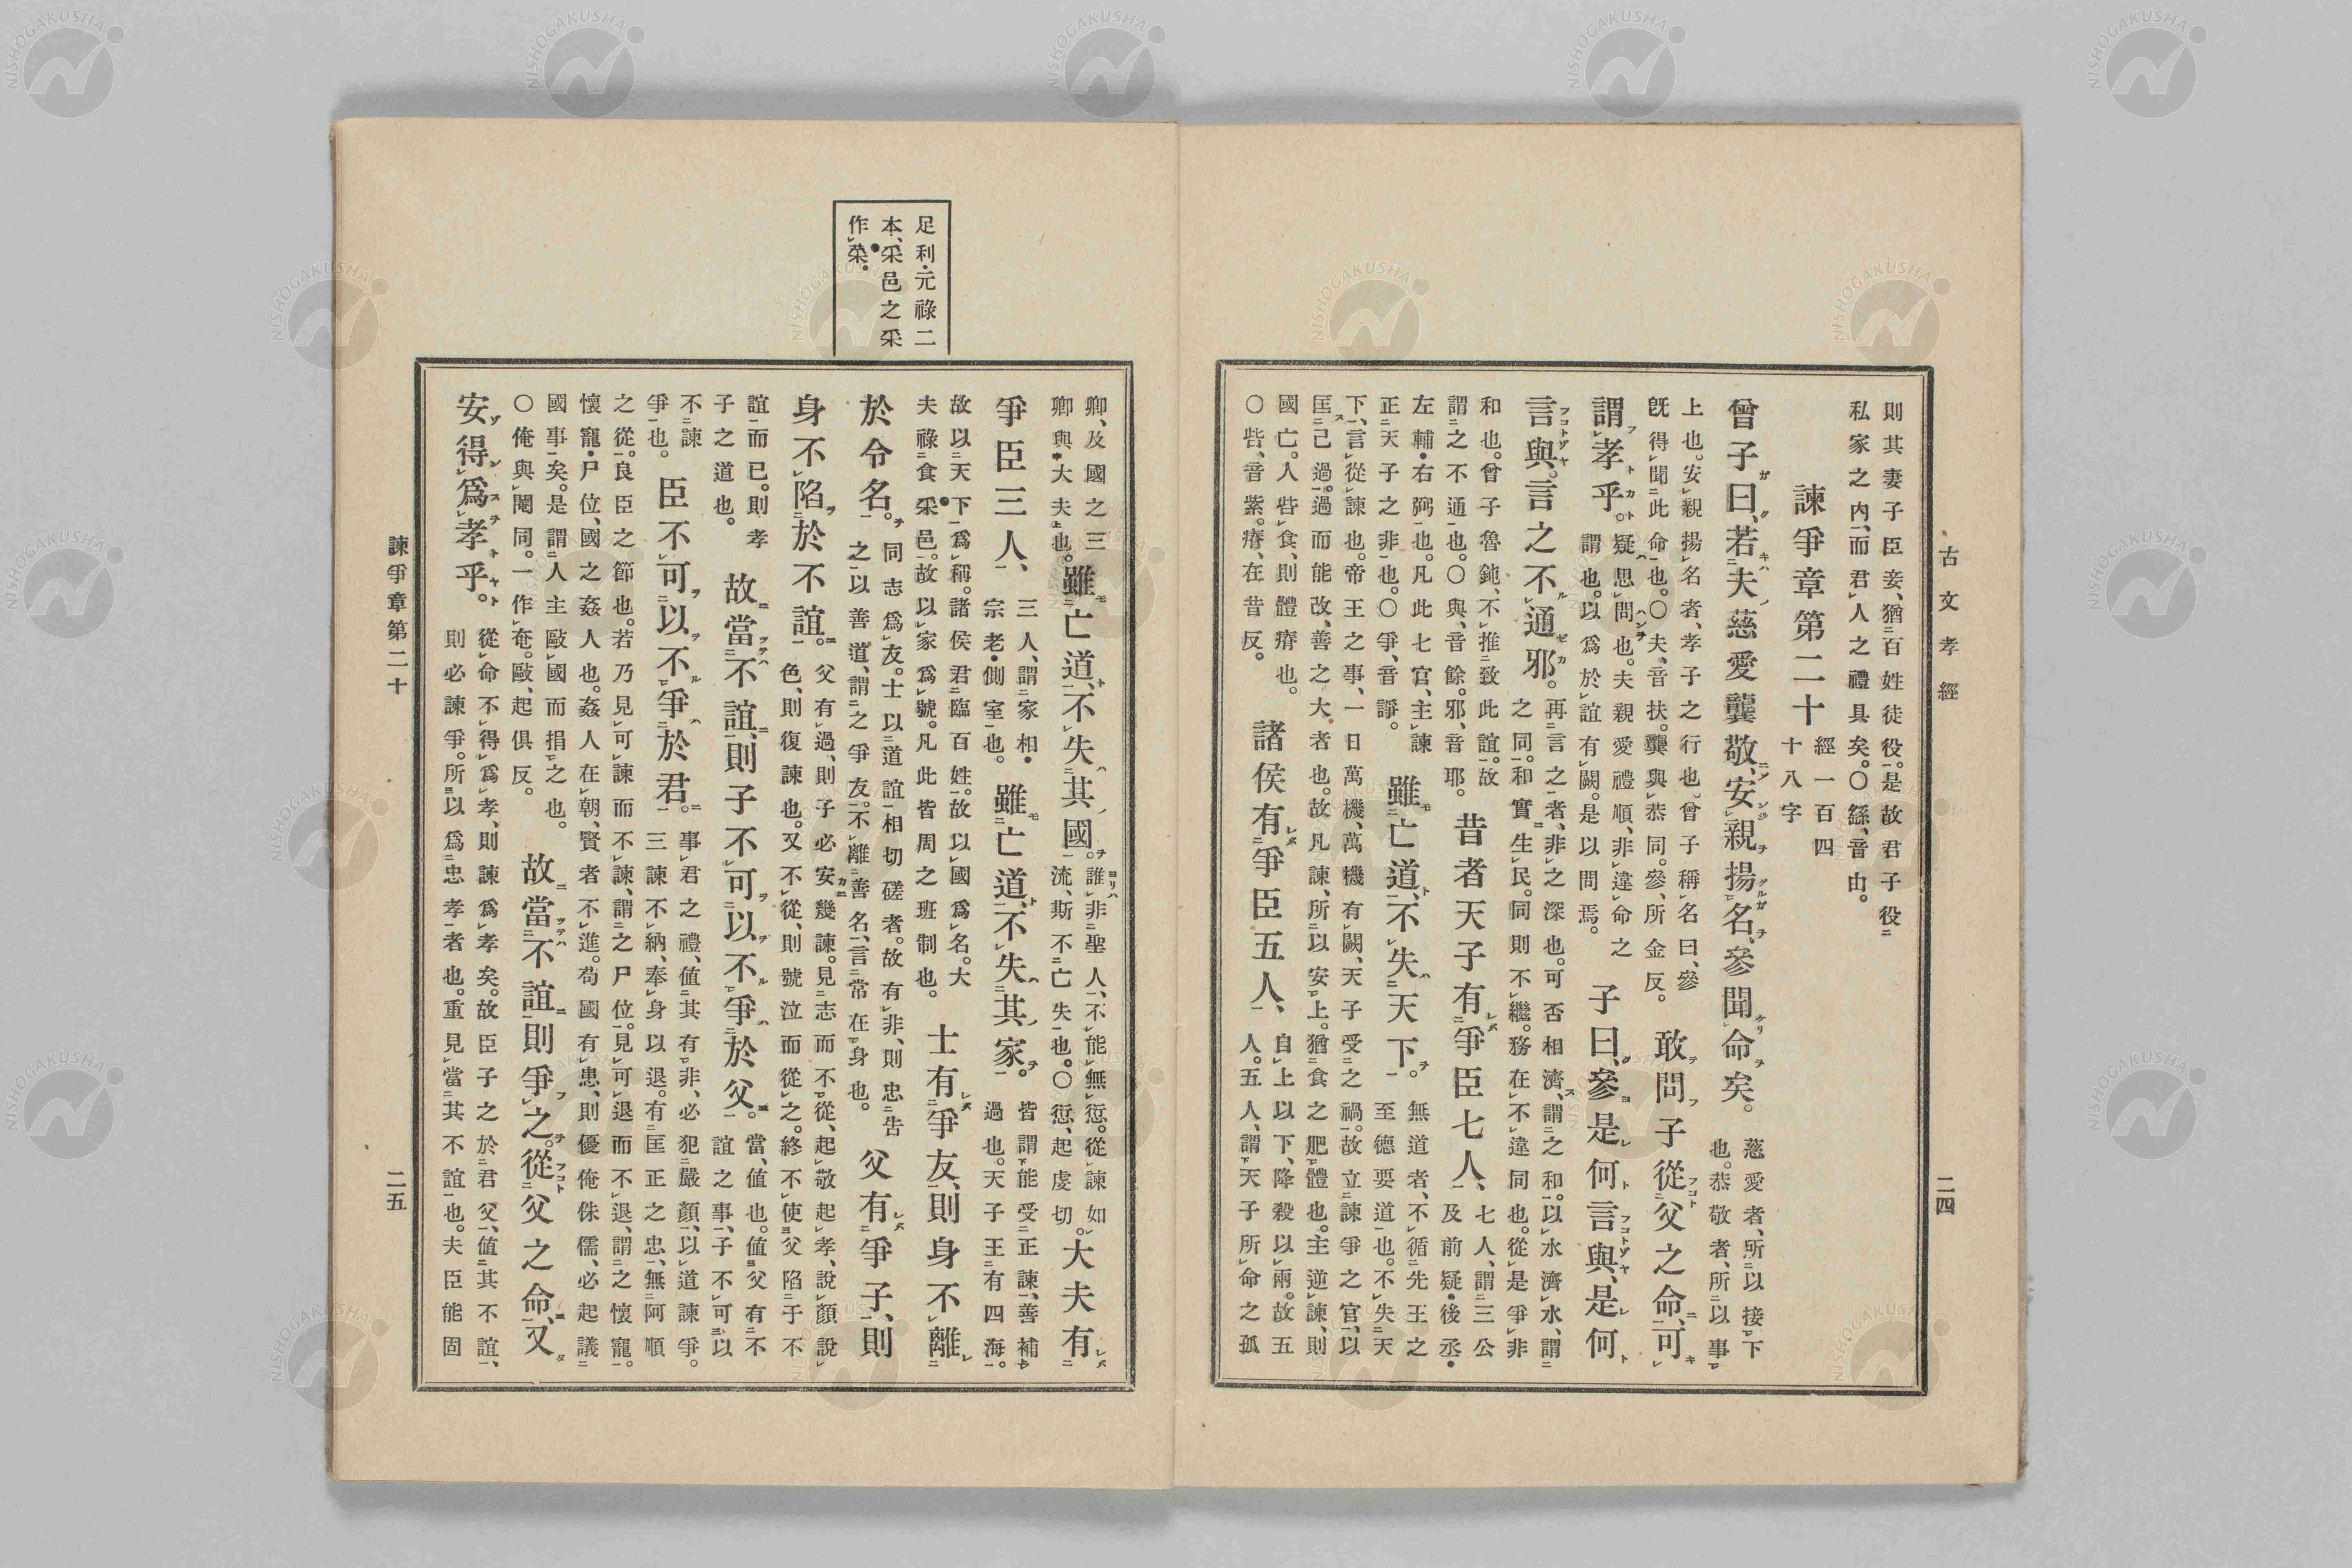 古文孝經
二四
則其妻子臣妾、猶百姓徒役。是故君子役
私家之内、而君人之禮具矣。〇繇、音由。
諫爭章第二十
經一百四
十八字
曾子曰、若夫慈愛龔敬、安親揚名、參聞命矣。
慈愛者、所以接下
也。恭敬者、所以事
上也。安親揚名者、孝子之行也。曾子稱名曰、參
旣得聞此命也。〇夫、音扶。龔與恭同。參、所金反。
敢問子從父之命、可
謂孝乎。
疑思問也。夫親愛禮順、非違命之
謂也。以爲於誼有闕。是以問焉。
子曰、參是何言與、是何
言與。言之不通邪。
再言之者、非之深也。可否相濟、謂之和。以水濟水、謂
之同。和實生民。同則不繼。務在不違同也。從是爭非
和也。曾子魯鈍、不推致此誼。故
謂之不通也。〇與、音餘。邪、音耶。
昔者天子有爭臣七人、
七人、謂三公
及前疑・後丞・
左輔・右弼也。凡此七官、主諫
正天子之非也。〇爭、音諍。
雖亡道、不失天下。
無道者、不循先王之
至德要道也。不失天
下、言從諫也。帝王之事、一日萬機、萬機有闕、天子受之禍。故立諫爭之官、以
匡己過。過而能改、善之大者也。故凡諫、所以安上。猶食之肥體也。主逆諫、則
國亡。人呰食、則體瘠也。
〇呰、音紫。瘠、在昔反。
諸侯有爭臣五人、
自上以下、降殺以兩。故五
人。五人、謂天子所命之孤
足利・元祿二
本、采邑之采
作埰。
卿、及國之三
卿與大夫也。
雖亡道、不失其國。
誰非聖人、不能無愆。從諫如
流、斯不亡失也。〇愆、起虔切。
大夫有
爭臣三人、
三人、謂家相・
宗老・側室也。
雖亡道、不失其家。
皆謂能受正諫、善補
過也。天子王有四海。
故以天下爲稱。諸侯君臨百姓。故以國爲名。大
夫祿食采邑。故以家爲號。凡此皆周之班制也。
士有爭友、則身不離
於令名。
同志爲友。士以道誼相切磋者。故有非、則忠告
之以善道、謂之爭友。不離善名、言常在身也。
父有爭子、則
身不陷於不誼。
父有過、則子必安幾諫。見志而不從、起敬起孝、說顏說
色、則復諫也。又不從、則號泣而從之。終不使父陷于不
誼而已。則孝
子之道也。
故當不誼、則子不可以不爭於父。
當、値也。値父有不
誼之事、子不可以
不諫
爭也。
臣不可以不爭於君。
事君之禮、値其有非、必犯嚴顏、以道諫爭。
三諫不納、奉身以退。有匡正之忠、無阿順
之從。良臣之節也。若乃見可諫而不諫、謂之尸位。見可退而不退、謂之懷寵。
懷寵・尸位、國之姦人也。姦人在朝、賢者不進。苟國有患、則優俺侏儒、必起議
國事矣。是謂人主毆國而捐之也。
〇俺與閹同。一作奄。毆、起俱反。
故當不誼則爭之。從父之命、又
安得爲孝乎。
從命不得爲孝、則諫爲孝矣。故臣子之於君父、値其不誼、
則必諫爭。所以爲忠孝者也。重見當其不誼也。夫臣能固
諫爭章第二十
二五